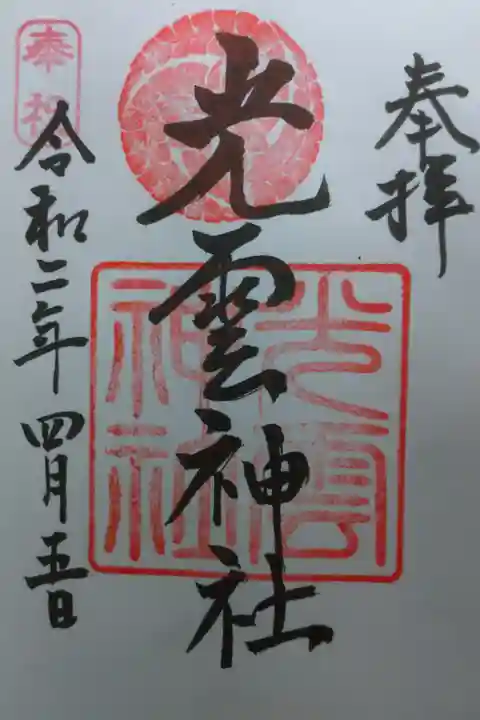 奉拝
光雲神社
光雲神社
令和二年四月五日
奉拝